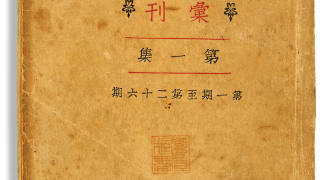 彙刊
第一集
第一期至第二十六期